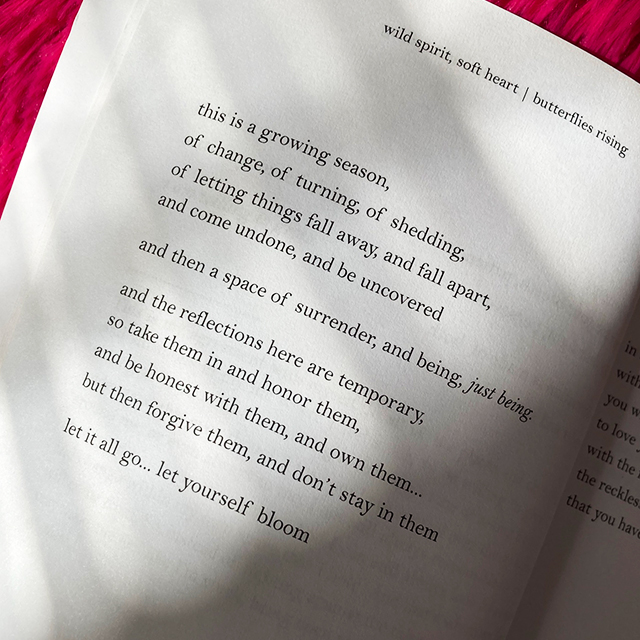 wild spirit, soft heart | butterflies rising
this is a growing season,
of change, of turning, of shedding,
of letting things fall away, and fall apart,
and come undone, and be uncovered
and then a space of surrender, and being, just being.
and the reflections here are temporary,
so take them in and honor them,
and be honest with them, and own them...
but then forgive them, and don't stay in them
let it all go... let yourself bloom
in
with
you w
to love
with the
the reckles
that you have